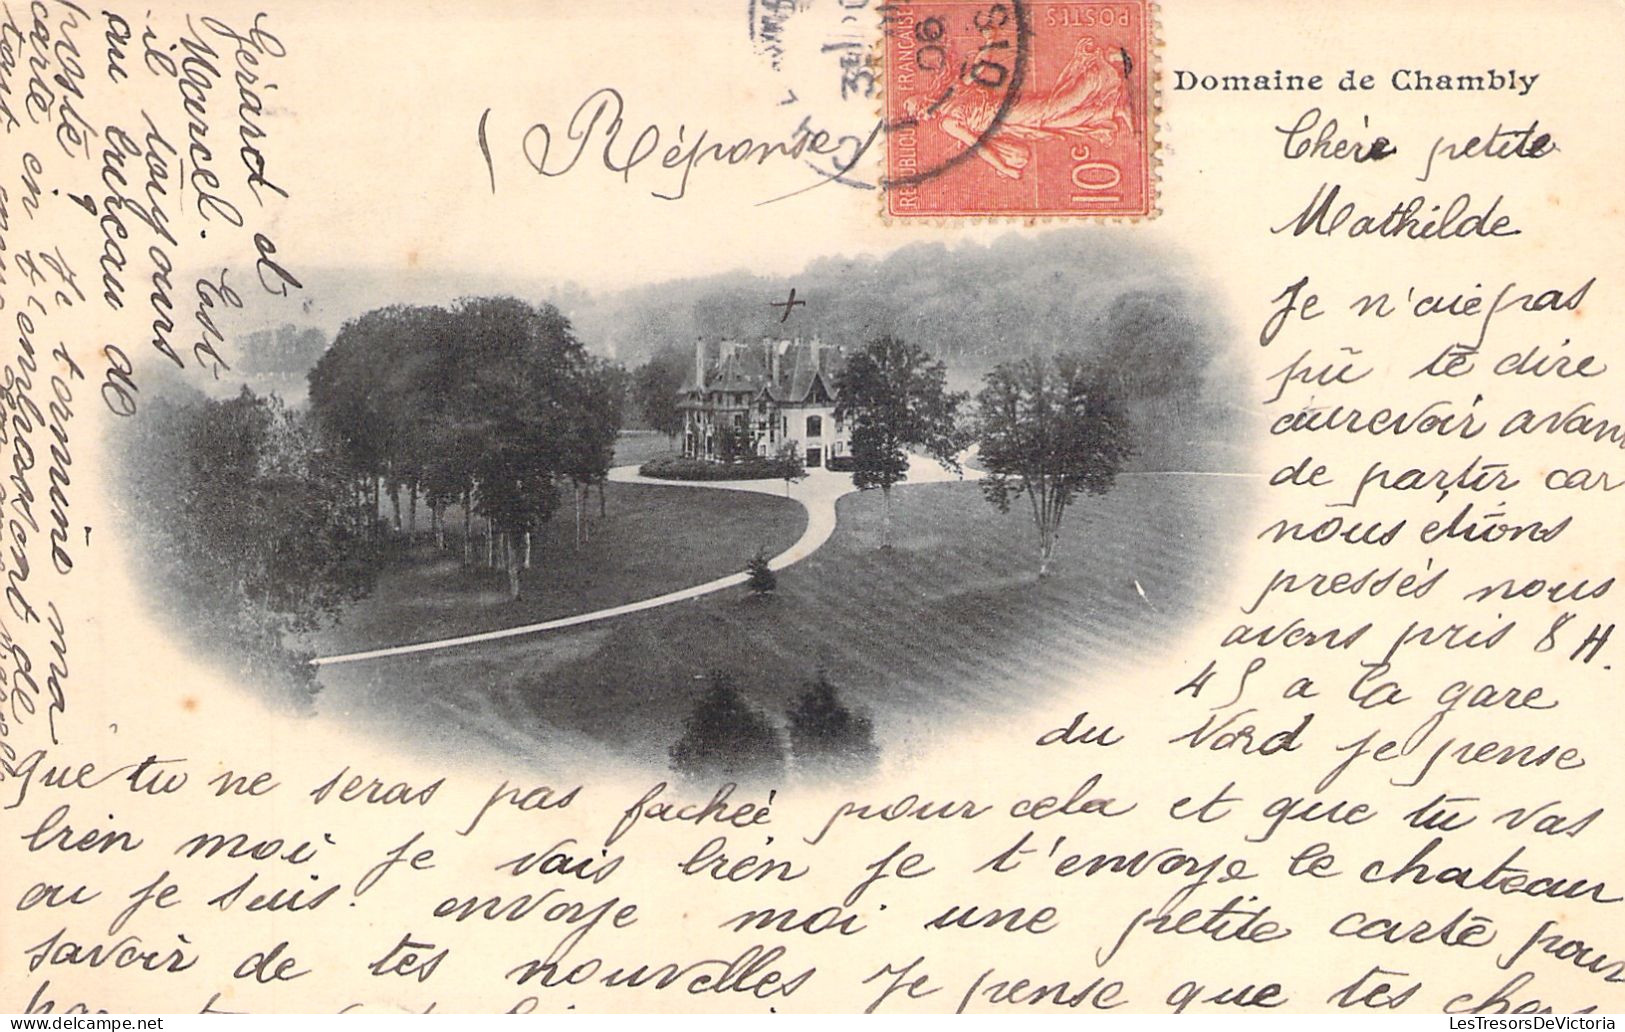 Domaine de Chambly
(Réponse)
RÉPUBLIQUE FRANÇAISE
POSTES
10c
06
Chère petite
Mathilde
Je n'aie pas
pu te dire
aurevoir avant
de partir car
nous étions
pressés nous
avons pris 8 H.
45 a la gare
du Nord je pense
que tu ne seras pas fachée pour cela et que tu vas
bien moi je vais bien je t'envoye le chateau
ou je suis. envoye moi une petite carte pour
savoir de tes nouvelles Je pense que tes chers
Gérard et
Marcel. Est
il toujours
au bureau de
poste ? Je termine ma
carte en t'embrassant de
LesTresorsDeVictoria